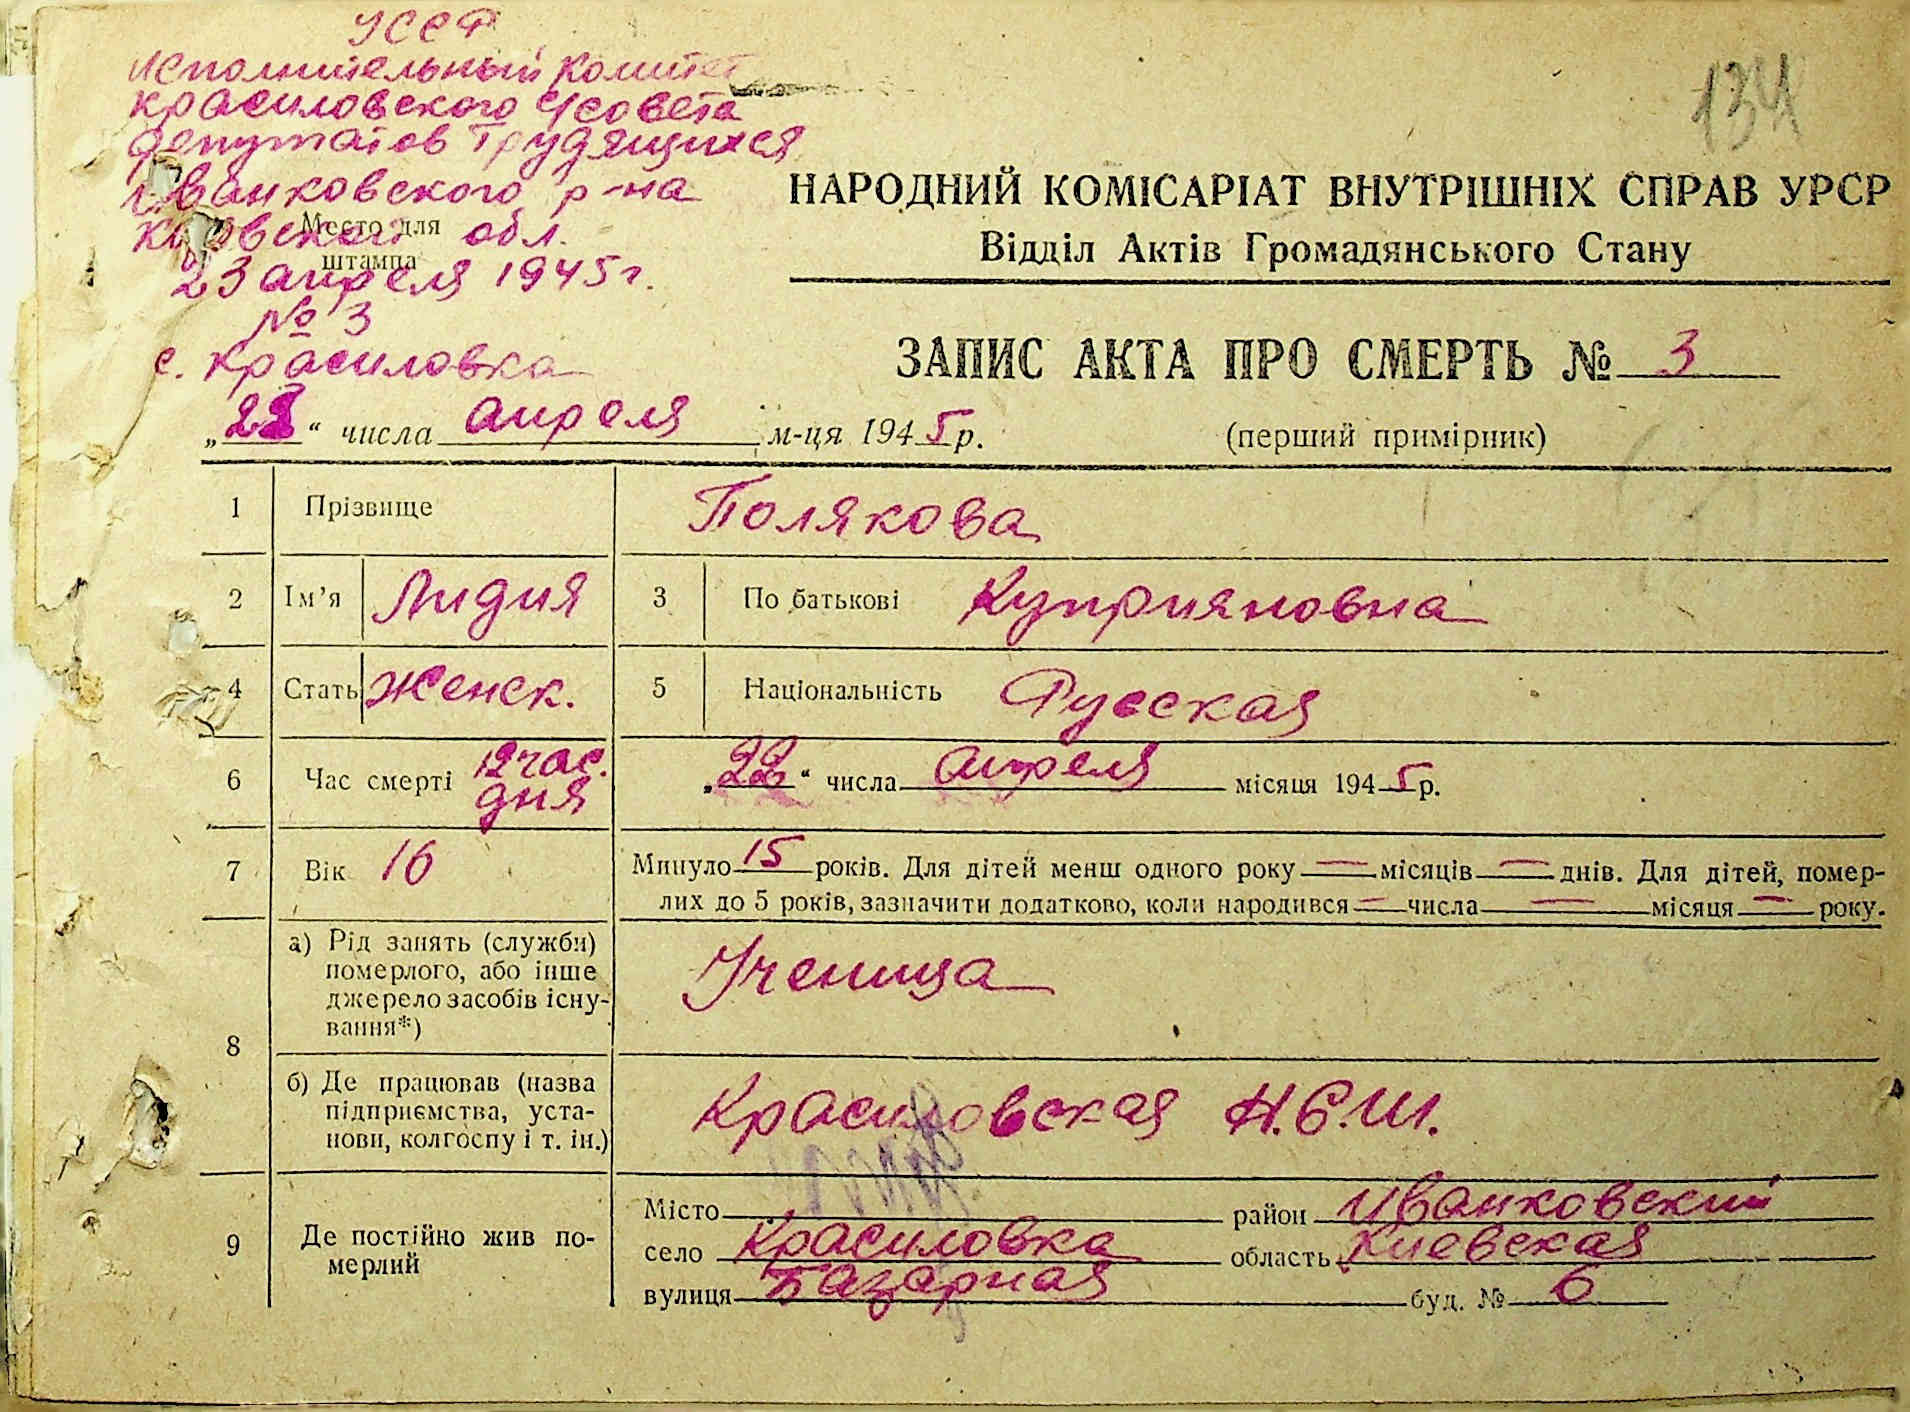 УССР
Исполнительный Комитет
Красиловского С/совета
депутатов Трудящихся
Иванковского р-на
Киевской обл.
Место для
штампа
23 апреля 1945 г.
№ 3
с. Красиловка
134
НАРОДНИЙ КОМІСАРІАТ ВНУТРІШНІХ СПРАВ УРСР
Відділ Актів Громадянського Стану
ЗАПИС АКТА ПРО СМЕРТЬ № 3
„23“ числа апреля м-ця 1945 р.
(перший примірник)
1 Прізвище Полякова
2 Ім’я Лидия 3 По батькові Куприяновна
4 Стать Женск. 5 Національність Русская
6 Час смерті 12 час. дня „22“ числа апреля місяця 1945 р.
7 Вік 16 Минуло 15 років. Для дітей менш одного року — місяців — днів. Для дітей, помер-
лих до 5 років, зазначити додатково, коли народився — числа — місяця — року.
8
а) Рід занять (служби)
померлого, або інше
джерело засобів існу-
вання*)
Ученица
б) Де працював (назва
підприємства, уста-
нови, колгоспу і т. ін.)
Красиловская Н.С.Ш.
9 Де постійно жив по-
мерлий
Місто район Иванковский
село Красиловка область Киевская
вулиця Базарная буд. № 6